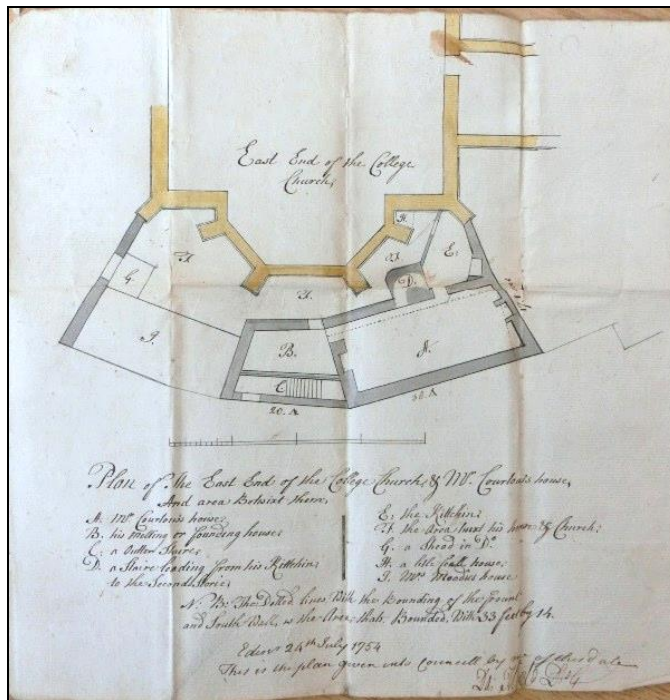 East End of the College
Church,
H.
E.
F.
F.
D.
G.
J.
B.
A.
C
20. A
30. A
Plan of the East End of the College Church, & Mr. Courtouis house,
And area Betwixt them,
A. Mr. Courtouis house;
B. his Melting or founding house;
C. a Outter Staire;
D. a Staire leading from his Kittchin;
to the Second storie;
E. the Kittchin;
F. the Area twixt his house & Church;
G. a Shood in Do.
H. a litle house;
J. Mrs. house
N. B: The Dotted lines, With the Bounding of the front
and South Wall, is the Area, thats Bounded, With 33 feet by 14.
Edinr. 24th July 1754
This is the plan given into Councill by